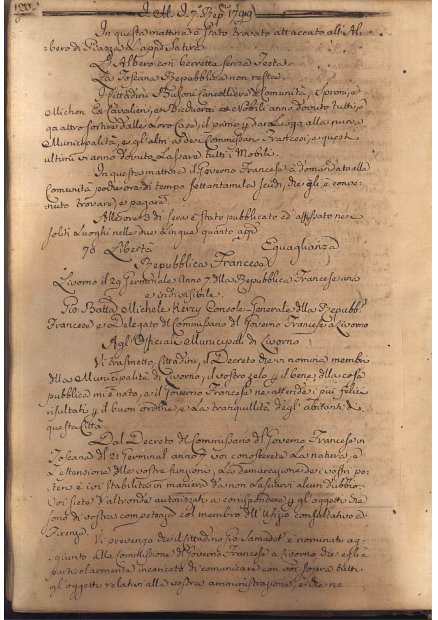 120.
In questa mattina è stato trovato attaccato all'Al-
bero di Piazza l'appresso Satira
L'Albero con berretta senza testa.
La Toscana Repubblica non resta.
I Cittadini Cancelliere Comunità, Sproni, e
Michon Ex-Cavalieri, e Nobili anno dovuto tutti e
quattro sortire dalle Loro Case, il primo per dar Luogo alla nuova
Municipalità, e gl'altri a de' Commissari Francesi, e quest'
ultimi vi anno dovuto Lassare tutti i Mobili.
In questa mattina il Governo Francese à domandato alla
Comunità poche ore di tempo settantamila scudi, che gli è conve-
nuto trovare, e pagare.
Alle ore 3 di sera è stato pubblicato ed affissato ne'
soliti Luoghi nelle due Lingue quanto appresso
76 Libertà Eguaglianza
Repubblica Francese
Livorno il 29 Germinale Anno 7. della Repubblica Francese una
e indivisibile.
Gio: Batta Michele Console Generale della Repubb:
Francese e Delegato del Commissario del Governo Francese a Livorno
Agl'Officiali Municipali di Livorno
Vi trasmetto, Cittadini, il Decreto che vi nomina membri
della Municipalità di Livorno, il vostro zelo per il bene della cosa
pubblica mi è noto, e il Governo Francese ne attende i più felici
risultati per il buon ordine, e la tranquillità degl'abitanti di
questa Città
Dal Decreto del Commissario del Governo Francese in
Toscana del 21 Germinal anno 7 voi conoscerete la natura, e
l'estensione delle vostre funzioni, la demarcazione de' vostri po-
teri è ivi stabilita in maniera da non lasciarvi alcun dubbio,
voi siete d'altronde autorizzati a corrispondere per gl'oggetti che
sono di vostra competenza col membro dell'Ufizio consultativo di
Firenze.
Vi prevengo che il Cittadino Gio: è nominato ag-
giunto alla Commissione del Governo Francese a Livorno che esso è
particolarmente incaricato di comunicare con voi sopra tutti
gl'oggetti relativi alla vostra amministrazione, e che ne